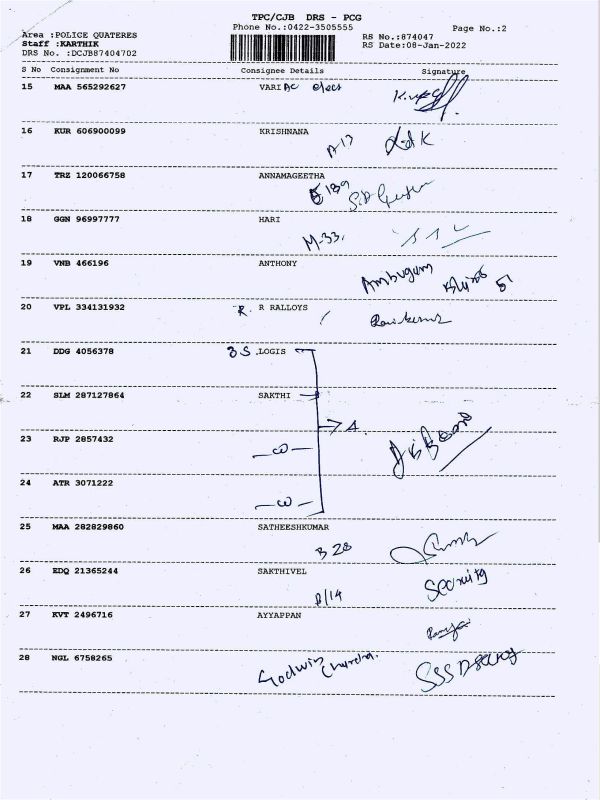 TPC/CJB DRS - PCG
Phone No.:0422-3505555
Page No.:2
Area :POLICE QUATERES
RS No.:874047
Staff :KARTHIK
RS Date:08-Jan-2022
DRS No. :DCJB87404702
S No Consignment No Consignee Details Signature
15 MAA 565292627 VARI AC elecs
16 KUR 606900099 KRISHNANA
A 17
17 TRZ 120066758 ANNAMAGEETHA
E 189
18 GGN 96997777 HARI
M-33.
19 VNB 466196 ANTHONY
Ambugam
20 VPL 334131932 R. R RALLOYS
Ravikumar
21 DDG 4056378 3S.LOGIS
22 SLM 287127864 SAKTHI
23 RJP 2857432
24 ATR 3071222
25 MAA 282829860 SATHEESHKUMAR
B 28
26 EDQ 21365244 SAKTHIVEL
Security
27 KVT 2496716 AYYAPPAN
28 NGL 6758265 Godwin